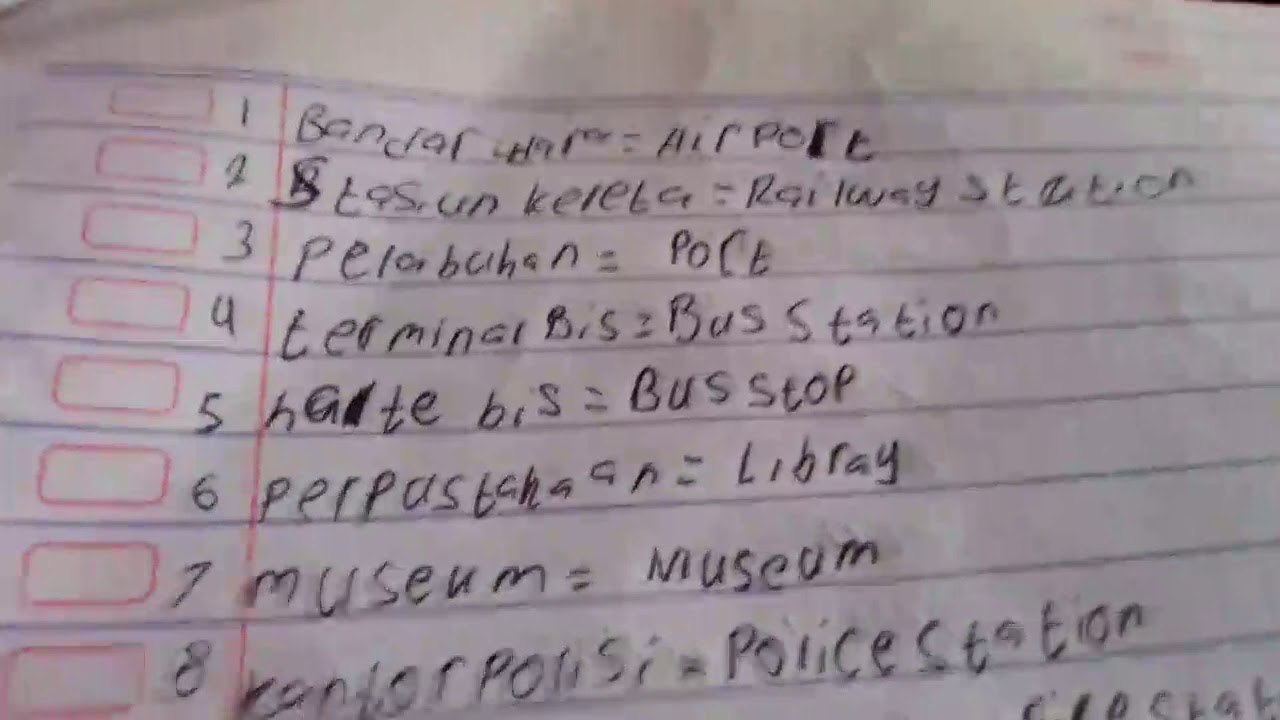 1 Bandar udara = AirPort
2 Stasiun kereta = Railway station
3 Pelabuhan = Port
4 terminal Bis = Bus Station
5 halte bis = Bus stop
6 perpustahaan = Libray
7 museum = Museum
8 kantor polisi = Police Station